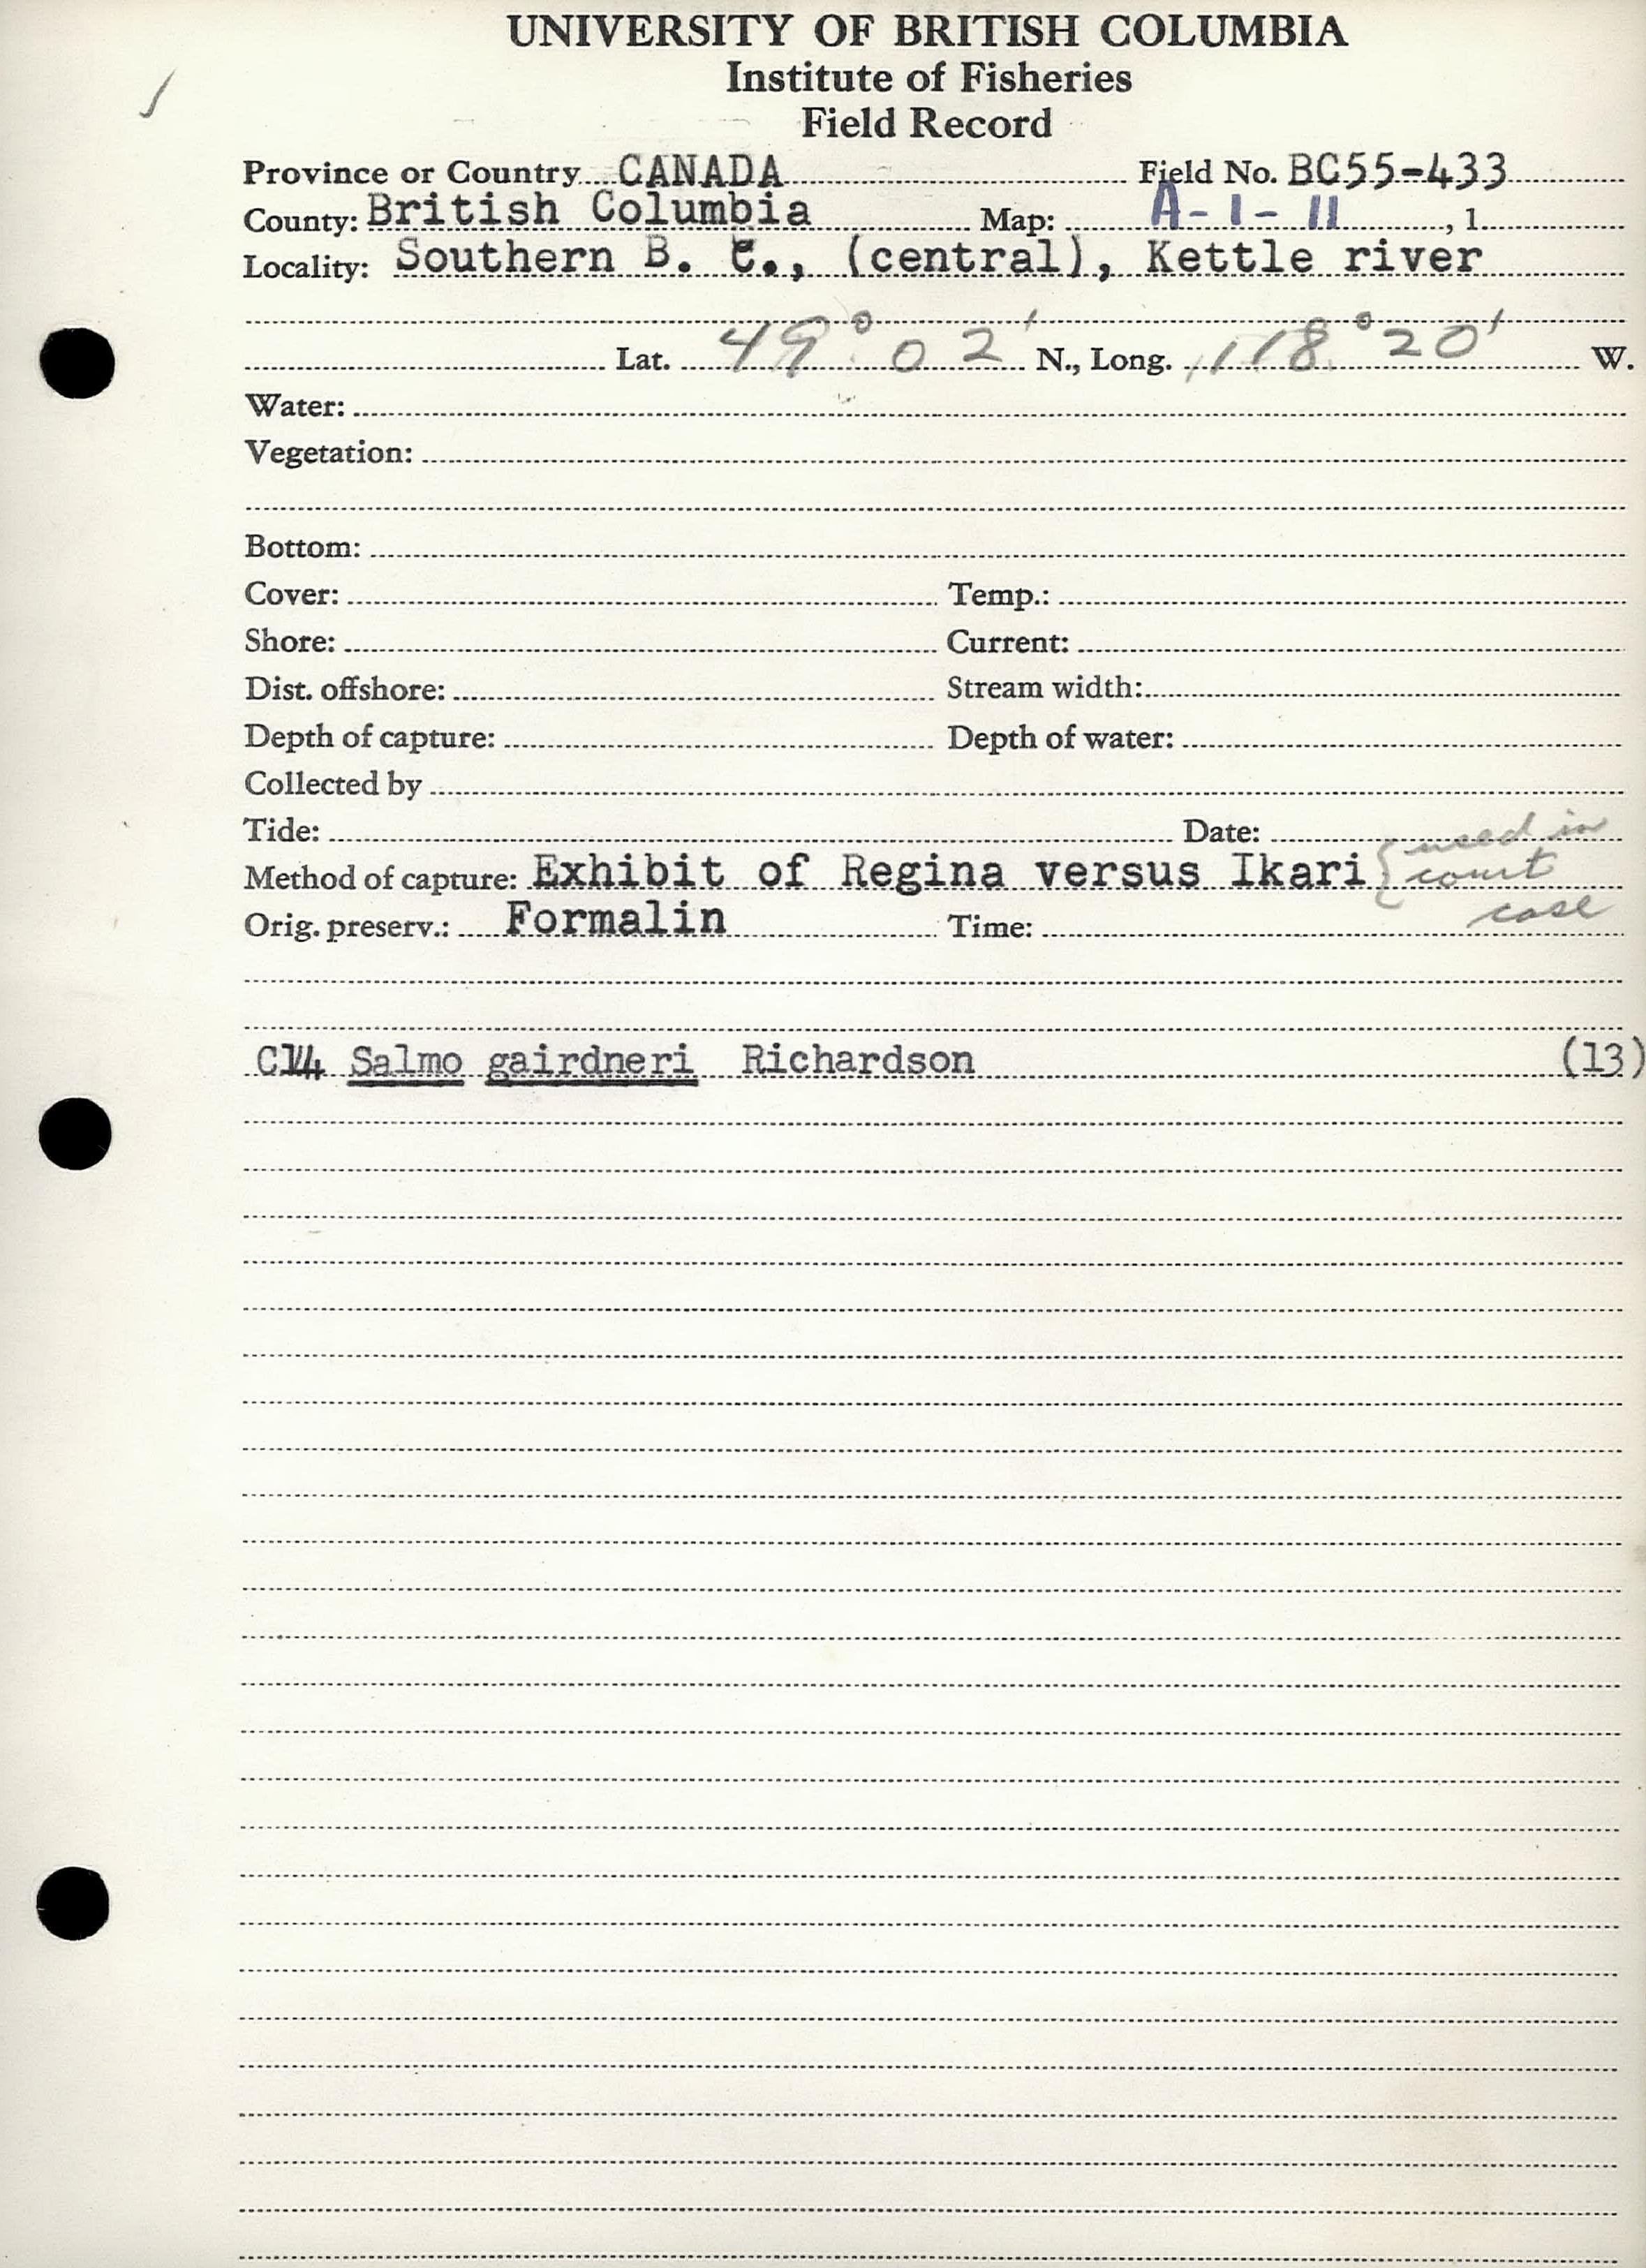 UNIVERSITY OF BRITISH COLUMBIA
Institute of Fisheries
Field Record
Province or Country CANADA Field No. BC55-433
County: British Columbia Map: A-1-11, 1
Locality: Southern B. C., (central), Kettle river
Lat. 49° 02' N., Long. 118° 20' W.
Water:
Vegetation:
Bottom:
Cover: Temp.:
Shore: Current:
Dist. offshore: Stream width:
Depth of capture: Depth of water:
Collected by
Tide: Date:
Method of capture: Exhibit of Regina versus Ikari { used in court case
Orig. preserv.: Formalin Time:
C14 Salmo gairdneri Richardson (13)